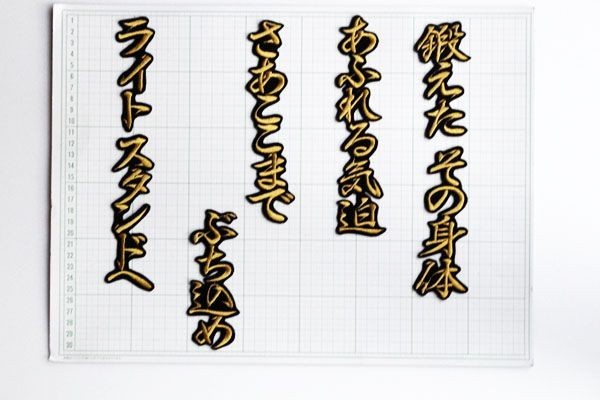 鍛えた その身体
あふれる気迫
さあここまで
ぶち込め
ライトスタンドへ
1
2
3
4
5
6
7
8
9
10
11
12
13
14
15
16
17
18
19
20
21
22
23
24
25
26
27
28
29
30